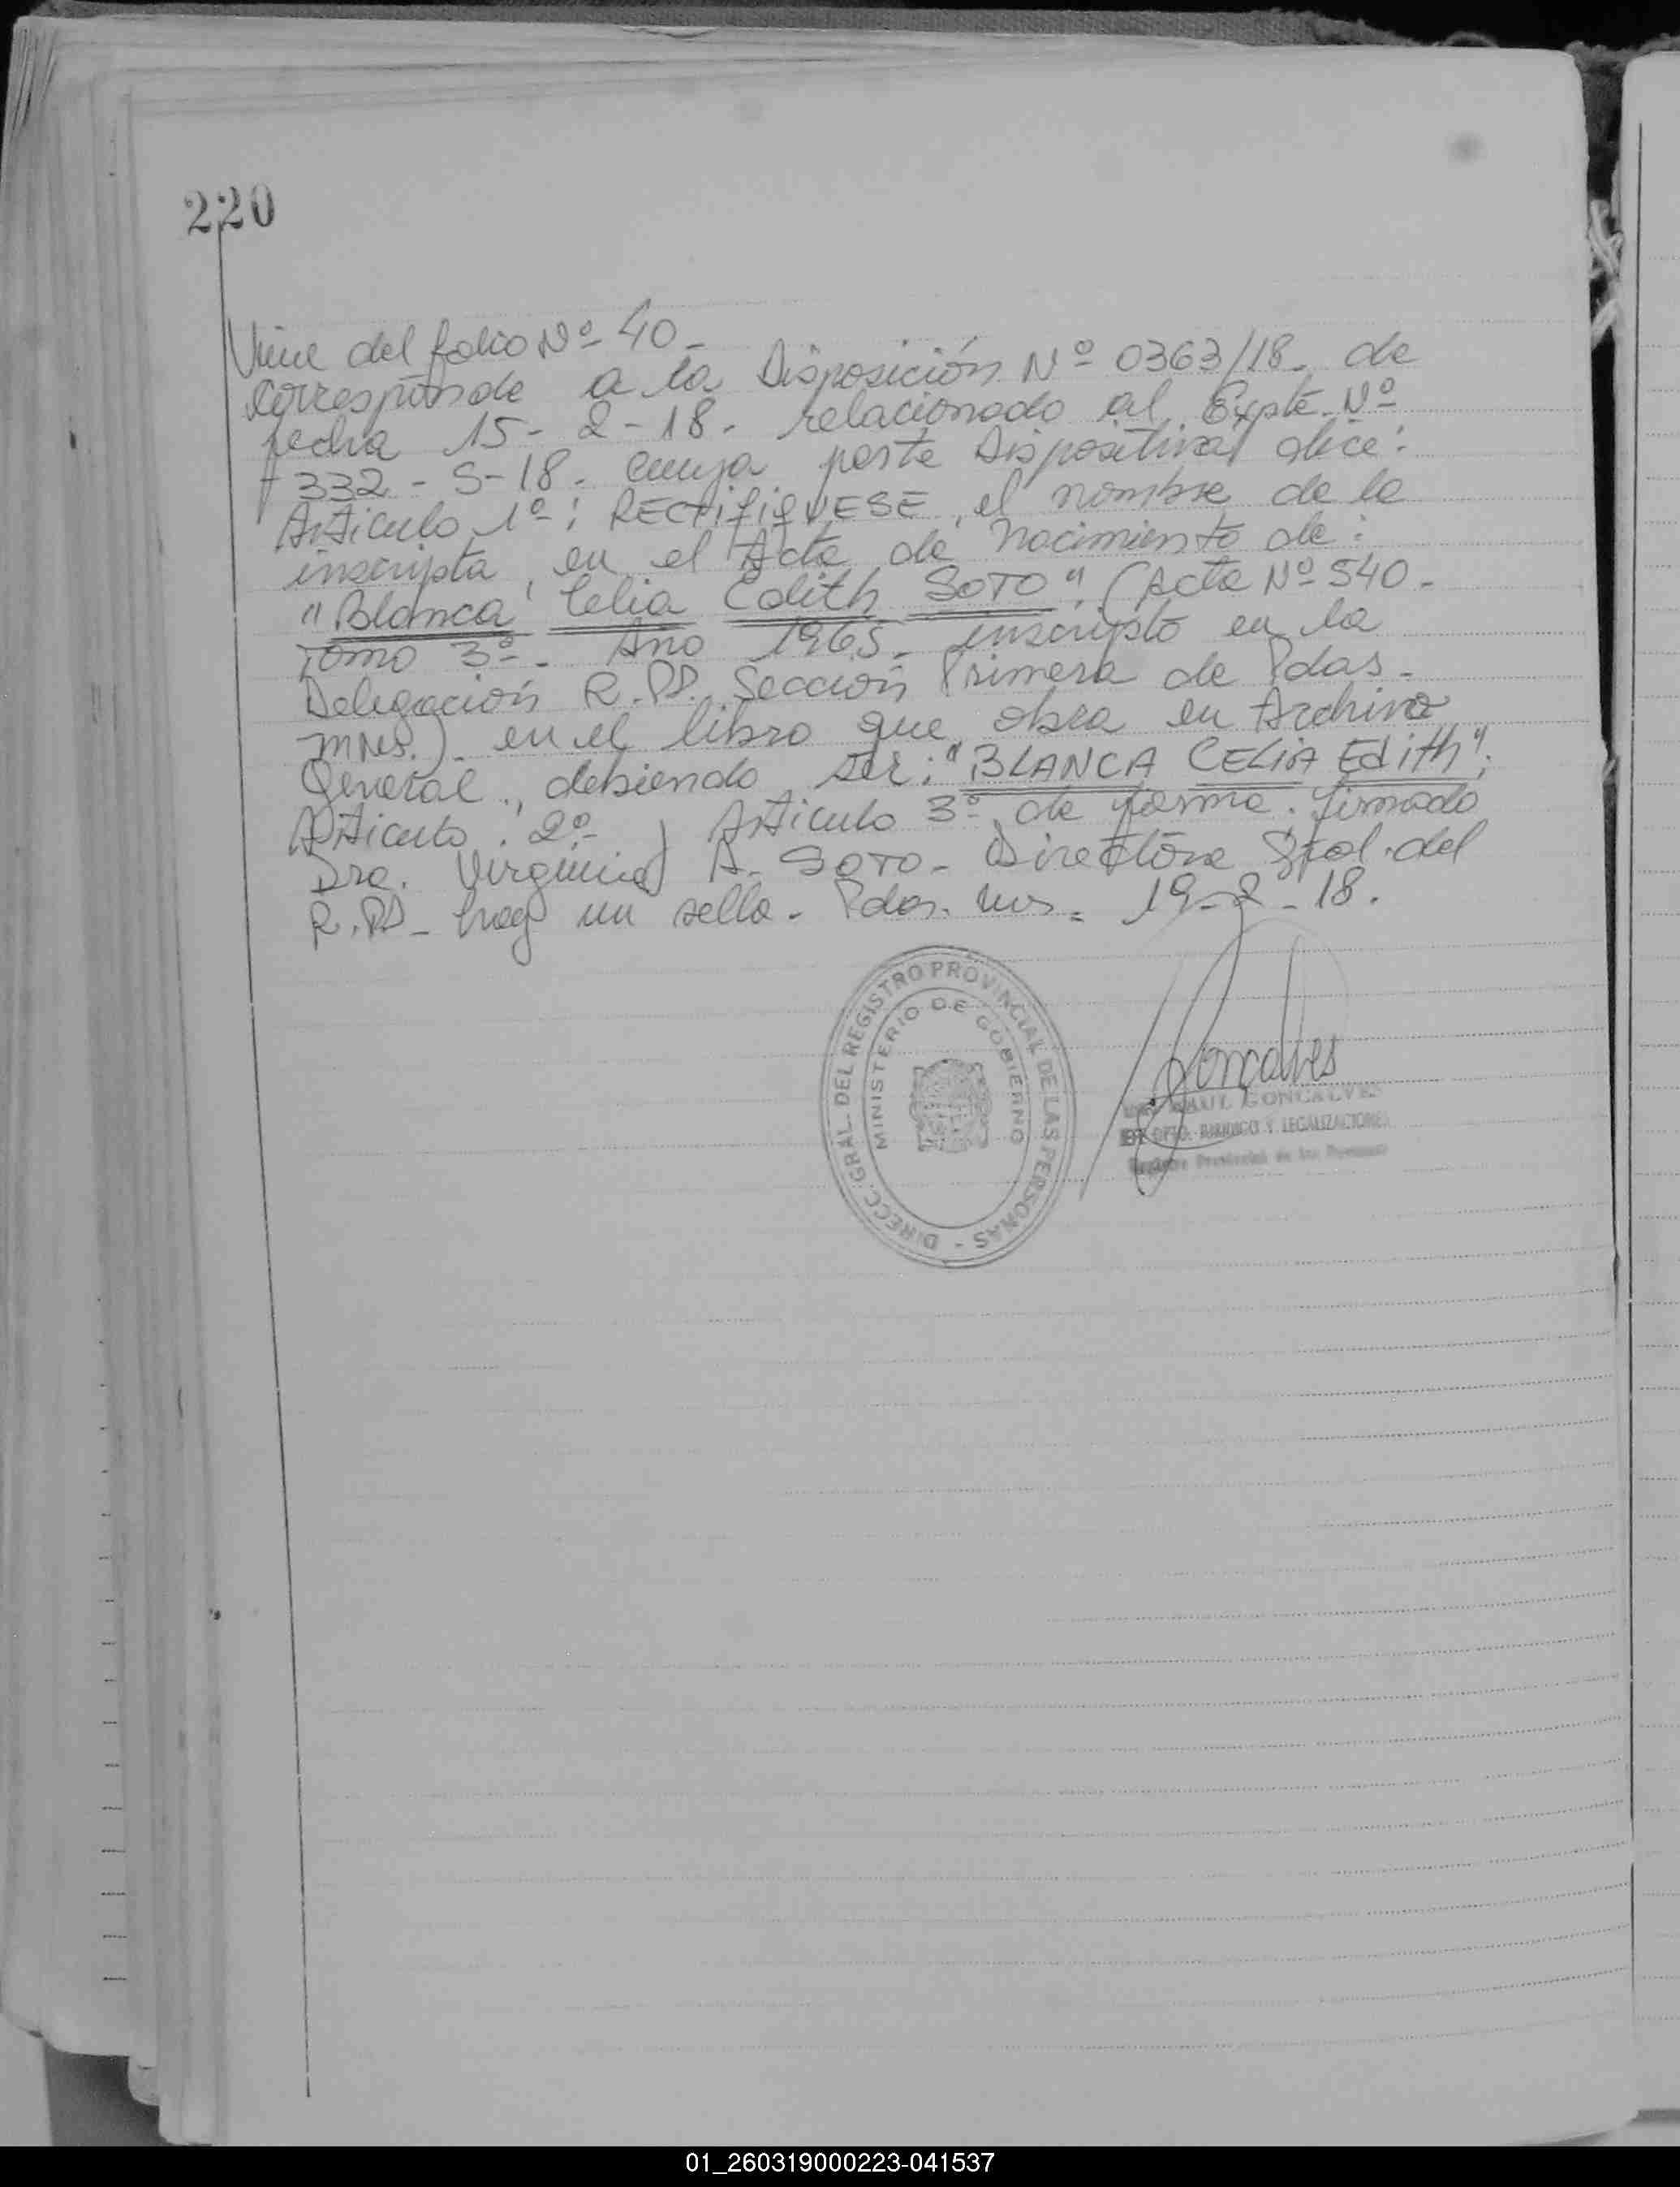 220
Viene del folio Nº 40-
Corresponde a la Disposición Nº 0363/18. de
fecha 15-2-18. relacionado al Expte. Nº
332-S-18. cuya parte Dispositiva dice:
Articulo 1º: RECTIFIQUESE, el nombre de la
inscripta, en el Acta de Nacimiento de:
"Blanca Celia Edith SOTO". (Acta Nº 540-
Tomo 3º- Año 1965- inscripto en la
Delegación R.PP. Sección Primera de Pdas-
Mnes.). en el libro que obra en Archivo
General, debiendo ser: "BLANCA CELIA Edith";
Articulo: 2º Articulo 3º de forma. firmado
Dra. Virginia A. SOTO- Directora Gral. del
R.PP- hay un sello- Pdas. Mns= 19-2-18.
DIRECC. GRAL. DEL REGISTRO PROVINCIAL DE LAS PERSONAS -
MINISTERIO DE GOBIERNO
Goncalves
RAUL GONCALVES
DPTO. Y LEGALIZACIONES
Registro Provincial de las Personas
01_260319000223-041537